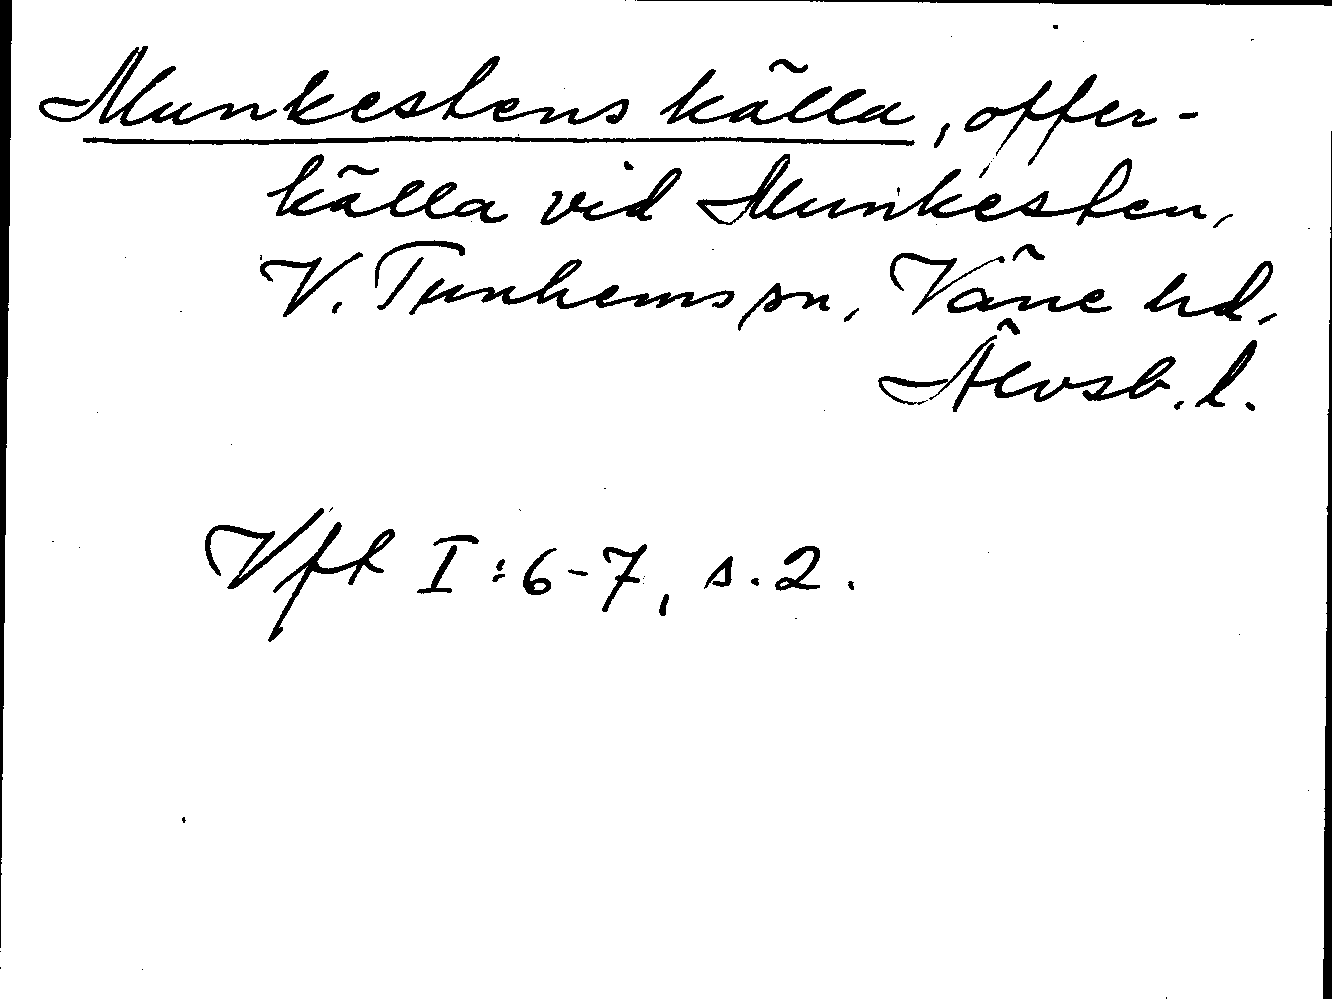 Munkestens källa, offer-
källa vid Munkesten,
V. Tunhems sn, Väne hd,
Älvsb. l.
Vft I:6-7, s. 2.